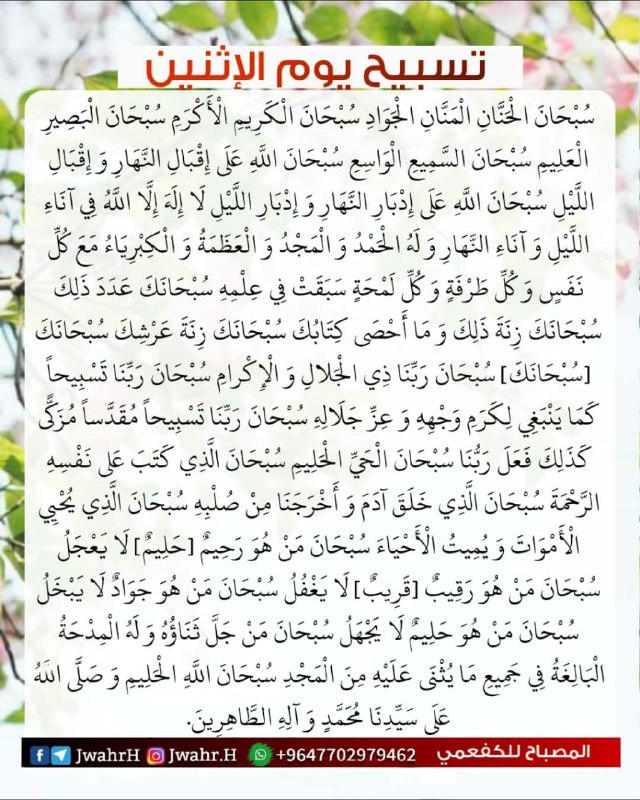 تسبيح يوم الإثنين
سُبْحَانَ الْحَنَّانِ الْمَنَّانِ الْجَوَادِ سُبْحَانَ الْكَرِيمِ الْأَكْرَمِ سُبْحَانَ الْبَصِيرِ
الْعَلِيمِ سُبْحَانَ السَّمِيعِ الْوَاسِعِ سُبْحَانَ اللَّهِ عَلَى إِقْبَالِ النَّهَارِ وَ إِقْبَالِ
اللَّيْلِ سُبْحَانَ اللَّهِ عَلَى إِدْبَارِ النَّهَارِ وَ إِدْبَارِ اللَّيْلِ لَا إِلَهَ إِلَّا اللَّهُ فِي آنَاءِ
اللَّيْلِ وَ آنَاءِ النَّهَارِ وَ لَهُ الْحَمْدُ وَ الْمَجْدُ وَ الْعَظَمَةُ وَ الْكِبْرِيَاءُ مَعَ كُلِّ
نَفَسٍ وَ كُلِّ طَرْفَةٍ وَ كُلِّ لَمْحَةٍ سَبَقَتْ فِي عِلْمِهِ سُبْحَانَكَ عَدَدَ ذَلِكَ
سُبْحَانَكَ زِنَةَ ذَلِكَ وَ مَا أَحْصَى كِتَابُكَ سُبْحَانَكَ زِنَةَ عَرْشِكَ سُبْحَانَكَ
[سُبْحَانَكَ] سُبْحَانَ رَبِّنَا ذِي الْجَلَالِ وَ الْإِكْرَامِ سُبْحَانَ رَبِّنَا تَسْبِيحاً
كَمَا يَنْبَغِي لِكَرَمِ وَجْهِهِ وَ عِزِّ جَلَالِهِ سُبْحَانَ رَبِّنَا تَسْبِيحاً مُقَدَّساً مُزَكًّى
كَذَلِكَ فَعَلَ رَبُّنَا سُبْحَانَ الْحَيِّ الْحَلِيمِ سُبْحَانَ الَّذِي كَتَبَ عَلَى نَفْسِهِ
الرَّحْمَةَ سُبْحَانَ الَّذِي خَلَقَ آدَمَ وَ أَخْرَجَنَا مِنْ صُلْبِهِ سُبْحَانَ الَّذِي يُحْيِي
الْأَمْوَاتَ وَ يُمِيتُ الْأَحْيَاءَ سُبْحَانَ مَنْ هُوَ رَحِيمٌ [حَلِيمٌ] لَا يَعْجَلُ
سُبْحَانَ مَنْ هُوَ رَقِيبٌ [قَرِيبٌ] لَا يَغْفُلُ سُبْحَانَ مَنْ هُوَ جَوَادٌ لَا يَبْخَلُ
سُبْحَانَ مَنْ هُوَ حَلِيمٌ لَا يَجْهَلُ سُبْحَانَ مَنْ جَلَّ ثَنَاؤُهُ وَ لَهُ الْمِدْحَةُ
الْبَالِغَةُ فِي جَمِيعِ مَا يُثْنَى عَلَيْهِ مِنَ الْمَجْدِ سُبْحَانَ اللَّهِ الْحَلِيمِ وَ صَلَّى اللَّهُ
عَلَى سَيِّدِنَا مُحَمَّدٍ وَ آلِهِ الطَّاهِرِينَ.
JwahrH Jwahr.H +9647702979462 المصباح للكفعمي